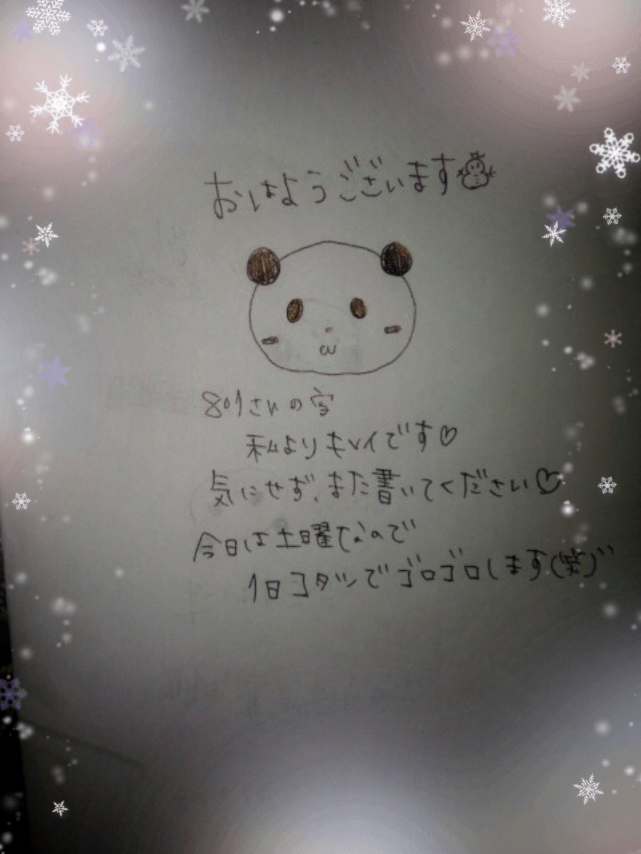 おはようございます
801さんの字
私よりキレイです♡
気にせず、また書いてください♡
今日は土曜なので
1日コタツでゴロゴロします(笑)